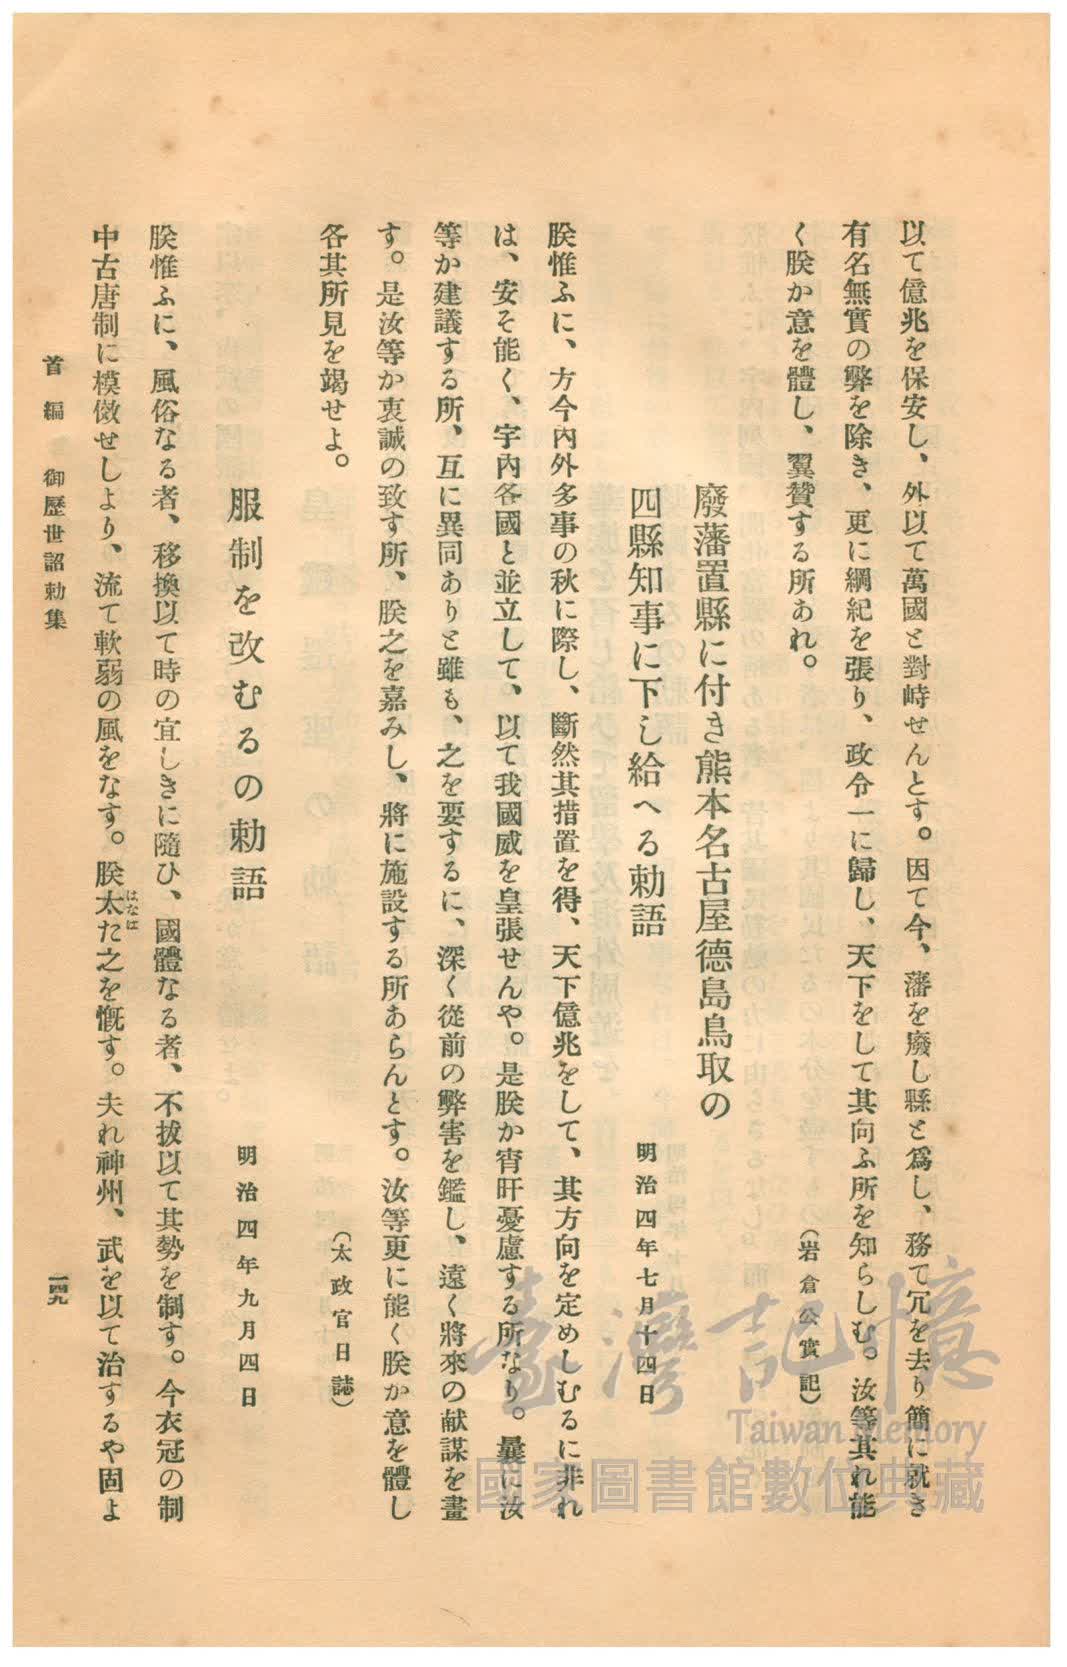 以て億兆を保安し、外以て萬國と對峙せんとす。因て今、藩を廢し縣と爲し、務て冗を去り簡に就き
有名無實の弊を除き、更に綱紀を張り、政令一に歸し、天下をして其向ふ所を知らしむ。汝等其れ能
く朕か意を體し、翼贊する所あれ。
（岩倉公實記）
廢藩置縣に付き熊本名古屋德島鳥取の
四縣知事に下し給へる勅語
明治四年七月十四日
朕惟ふに、方今內外多事の秋に際し、斷然其措置を得、天下億兆をして、其方向を定めしむるに非れ
は、安そ能く、宇內各國と並立して、以て我國威を皇張せんや。是朕か宵旰憂慮する所なり。曩に汝
等か建議する所、互に異同ありと雖も、之を要するに、深く從前の弊害を鑑し、遠く將來の献謀を畫
す。是汝等か衷誠の致す所、朕之を嘉みし、將に施設する所あらんとす。汝等更に能く朕か意を體し
各其所見を竭せよ。
（太政官日誌）
服制を改むるの勅語
明治四年九月四日
朕惟ふに、風俗なる者、移換以て時の宜しきに隨ひ、國體なる者、不拔以て其勢を制す。今衣冠の制
中古唐制に模倣せしより、流て軟弱の風をなす。朕太た之を慨す。夫れ神州、武を以て治するや固よ
はなは
首編 御歷世詔勅集
一四九
臺灣記憶
Taiwan Memory
國家圖書館數位典藏